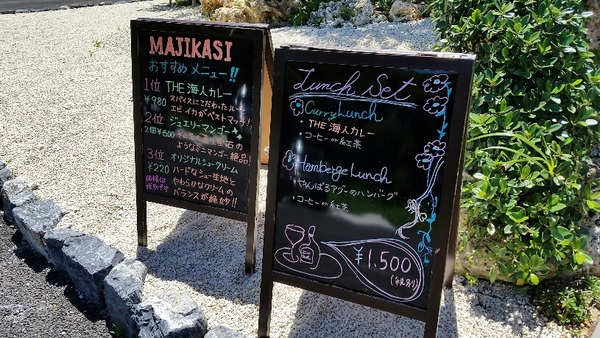 MAJIKASI
おすすめ メニュー!!
1位 THE 海人カレー
¥980 スパイスにこだわったルーに
エビ イカがベストマッチ!
2位 ジュエリーマンゴー
2個¥600 石の
ようなミニマンゴー 絶品!
3位 オリジナルシュークリーム
¥220 ハードなシュー生地と
価格は やわらかなクリームの
税別です バランスが絶妙!!
Lunch Set
Curry Lunch
・THE 海人カレー
・コーヒー or 紅茶
Hamberge Lunch
・やんばるアグーのハンバーグ
・コーヒー or 紅茶
¥1.500
(税別)